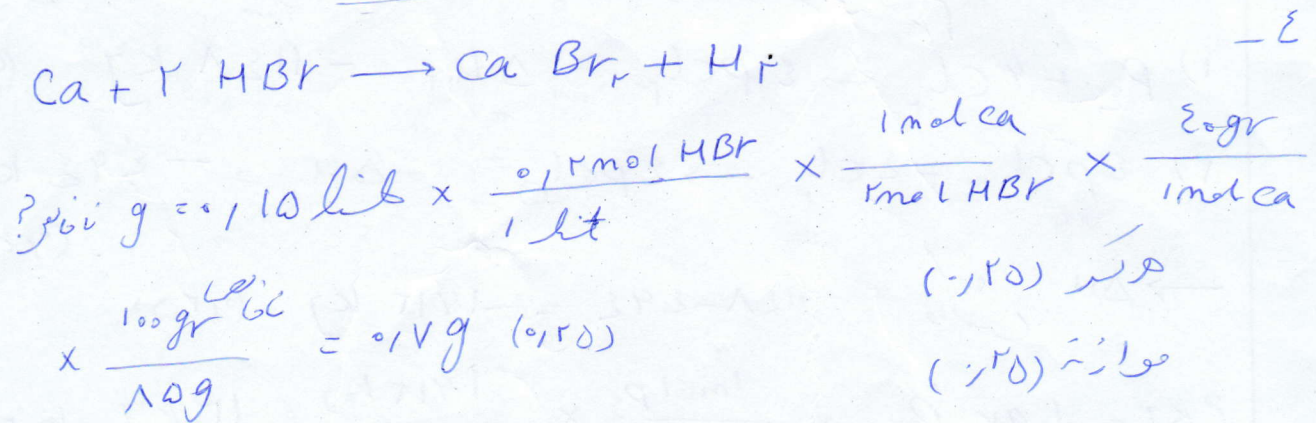 ٤-
Ca + ۲ HBr → Ca Br₂ + H₂
? g ناخالص = ۰,۱۵ lit × ۰,۲ mol HBr / ۱ lit × ۱ mol Ca / ۲ mol HBr × ٤۰ gr / ۱ mol Ca
× ۱۰۰ gr ناخالص / ۸۵ g = ۰,۷ g (۰,۲۵)
هر کسر (۰,۲۵)
موازنه (۰,۲۵)